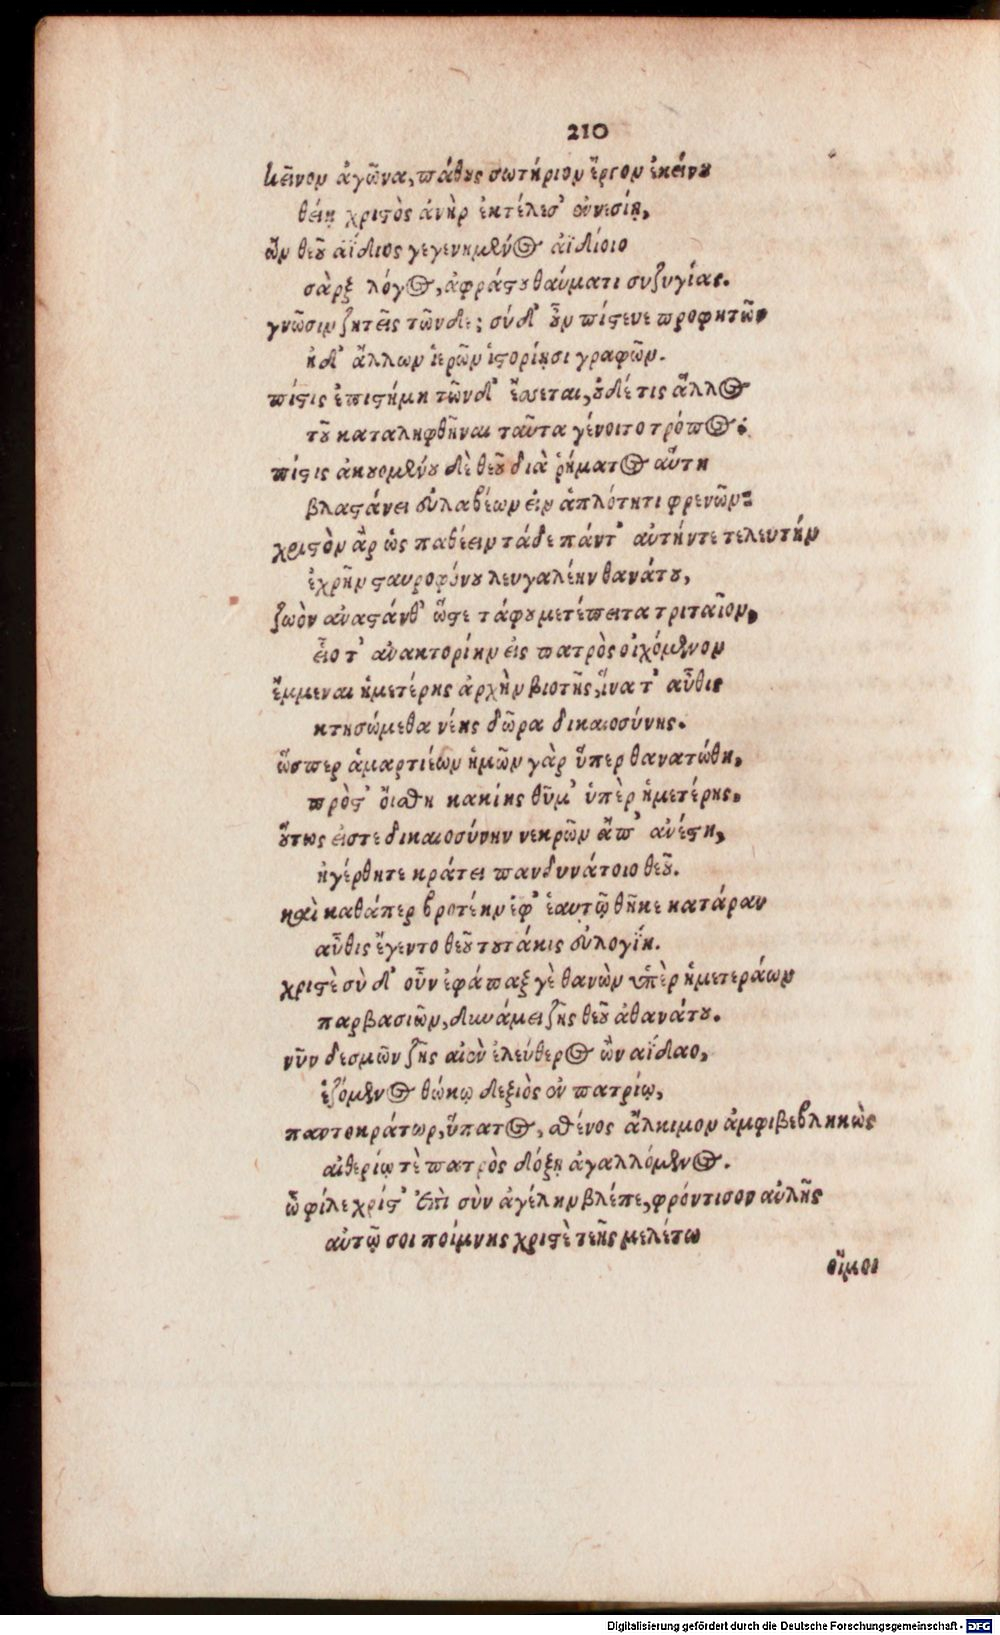 210
κεῖνον ἀγῶνα, πάθους σωτήριον ἔργον ἐκείνου
θείῃ χριστὸς ἀνὴρ ἐκτέλεσ' ἐννεσίῃ,
ὢν θεοῦ ἀΐδιος γεγενημένος ἀϊδίοιο
σὰρξ λόγος, ἀφράστου θαύματι συζυγίας.
γνῶσιν ζητεῖς τῶνδε; σύ δ' οὖν πίστευε προφητῶν
ἠδ' ἄλλων ἱερῶν ἱστορίῃσι γραφῶν.
πίστις ἐπιστήμη τῶνδ' ἕψεται, οὐδέ τις ἄλλος
τοῦ καταληφθῆναι ταῦτα γένοιτο τρόπος:
πίστις ἀκουομένου δὲ θεοῦ διὰ ῥήματος αὕτη
βλαστάνει εὐλαβέων ἐν ἁπλότητι φρενῶν:
χριστὸν ἂρ ὡς παθέειν τάδε πάντ' αὐτήν τε τελευτήν
ἐχρῆν σταυροφόνου λευγαλέην θανάτου,
ζωὸν ἀναστάνθ' ὥστε τάφου μετέπειτα τριταῖον,
εἷο τ' ἀνακτορίην εἰς πατρὸς οἰχόμενον
ἔμμεναι ἡμετέρης ἀρχὴν βιοτῆς, ἵνα τ' αὖθις
κτησώμεθα νέης δῶρα δικαιοσύνης.
ὥσπερ ἁμαρτιέων ἡμῶν γὰρ ὕπερ θανατώθη,
πρὸς δ' οἰσθη κακίης θῦμ' ὑπὲρ ἡμετέρης.
οὕτως εἴς τε δικαιοσύνην νεκρῶν ἄπ' ἀνέστη,
ἠγέρθη τε κράτει πανδυνάτοιο θεοῦ.
καὶ καθάπερ βροτέην ἐφ' ἑαυτῷ θῆκε κατάραν
αὖθις ἔγεντο θεοῦ τουτάκις εὐλογίη.
χριστὲ σὺ δ' οὖν ἐφάπαξ γὲ θανὼν ὑπὲρ ἡμετεράων
παρβασιῶν, δυνάμει ζῇς θεοῦ ἀθανάτου.
νῦν δεσμῶν ζῇς αἰὲν ἐλεύθερος ὢν ἀΐδαο,
ἑζόμενος θώκῳ δεξιὸς ἐν πατρίῳ,
παντοκράτωρ, ὕπατος, σθένος ἄλκιμον ἀμφιβεβληκὼς
αἰθερίῳ τὲ πατρὸς δόξῃ ἀγαλλόμενος.
ὦ φίλε χρίστ' ἐπὶ σὺν ἀγέλην βλέπε, φρόντισον αὐλῆς
αὐτῷ σοι ποίμνης χριστὲ τεῆς μελέτω
οἴμοι
Digitalisierung gefördert durch die Deutsche Forschungsgemeinschaft - DFG